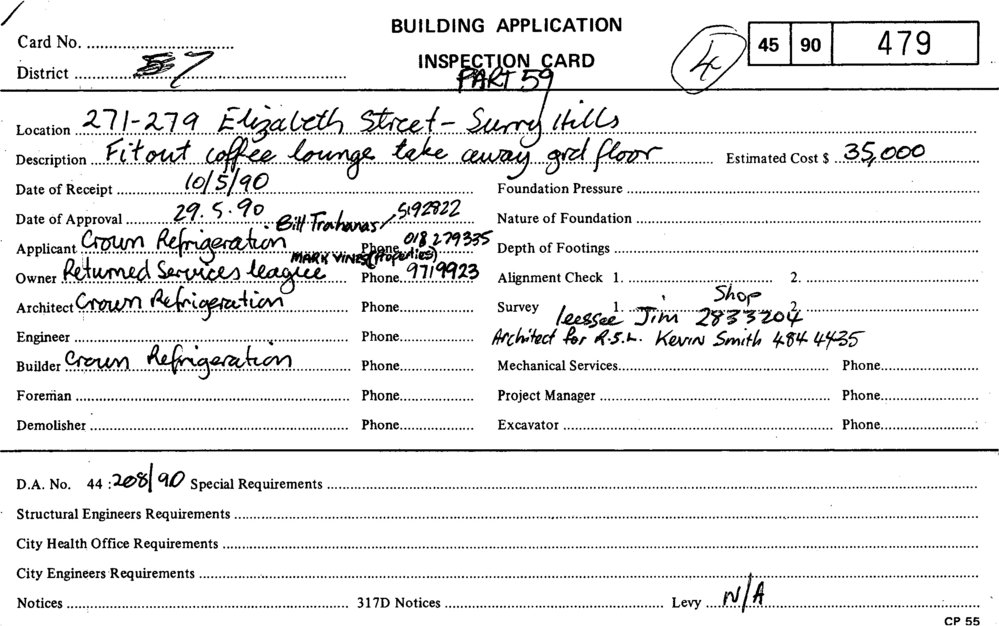 BUILDING APPLICATION
INSPECTION CARD
PART 59
Card No.
District 7
4
45 90 479
Location 271-279 Elizabeth Street - Surry Hills
Description Fitout coffee lounge take away grd floor Estimated Cost $ 35,000
Date of Receipt 10/5/90 Foundation Pressure
Date of Approval 29.5.90 Bill Trahanas / 5192822 Nature of Foundation
Applicant Crown Refrigeration Phone 018 279335 Depth of Footings
MARK VINES (Properties)
Owner Returned Services league Phone 9719923 Alignment Check 1. 2.
Architect Crown Refrigeration Phone Survey 1. 2.
Shop
leessee Jim 2833204
Engineer Phone Architect for R.S.L. Kevin Smith 484 4435
Builder Crown Refrigeration Phone Mechanical Services Phone
Foreman Phone Project Manager Phone
Demolisher Phone Excavator Phone
D.A. No. 44 : 208/90 Special Requirements
Structural Engineers Requirements
City Health Office Requirements
City Engineers Requirements
Notices 317D Notices Levy N/A
CP 55